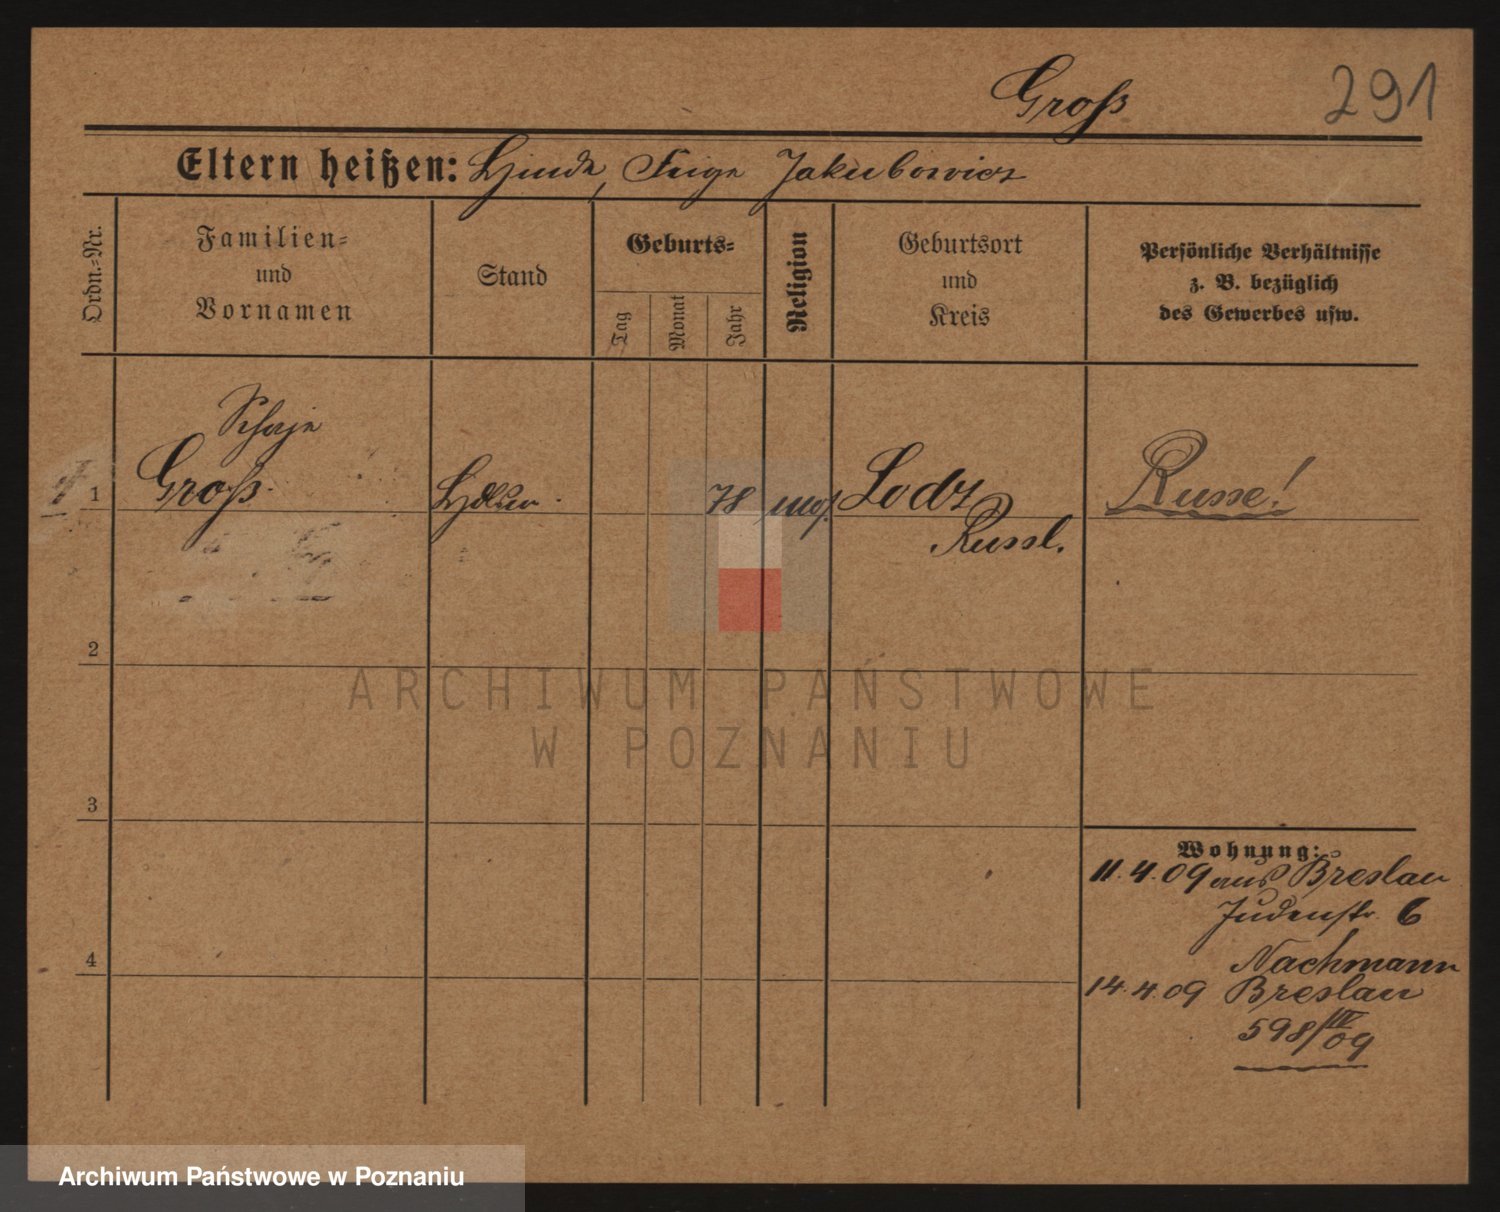 Groß
291
Eltern heißen: Hinde, Feige Jakubowicz
Ordn.-Nr.
Familien-
und
Vornamen
Stand
Geburts-
Tag
Monat
Jahr
Religion
Geburtsort
und
Kreis
Persönliche Verhältnisse
z. B. bezüglich
des Gewerbes usw.
Schaje
1 Groß 78 mos. Lodz
Russl.
Russe!
2
3
4
Wohnung:
11.4.09 aus Breslau
Judenstr. 6
Nachmann
14.4.09 Breslau
598/IV 09
ARCHIWUM PAŃSTWOWE
W POZNANIU
Archiwum Państwowe w Poznaniu